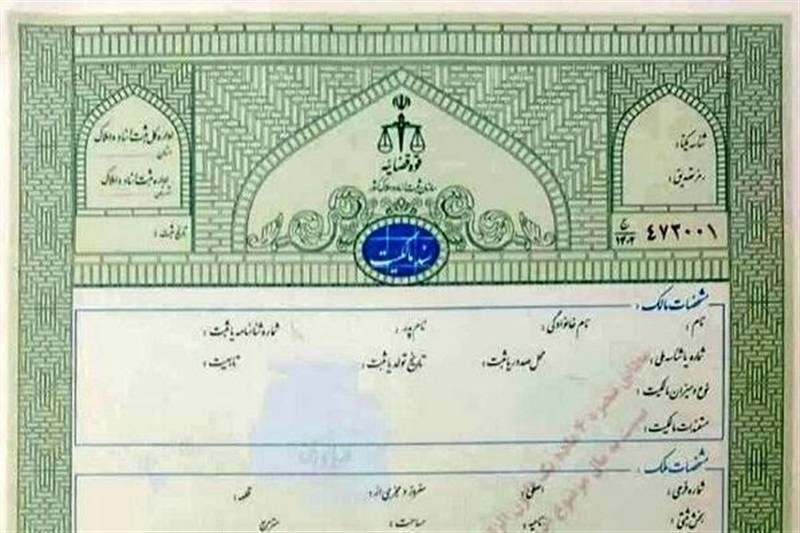 قوه قضائیه
سازمان ثبت اسناد و املاک کشور
اداره کل ثبت اسناد و املاک
استان
اداره ثبت اسناد و املاک
شهرستان
تاریخ ثبت :
شناسه یکتا :
رمز تصدیق :
۴۷۲۰۰۱
ج
۱۴۰۲
سند مالکیت
مشخصات مالک :
نام : نام خانوادگی : نام پدر : شماره شناسنامه یا ثبت :
شماره یا شناسه ملی : محل صدور یا ثبت : تاریخ تولد یا ثبت : تابعیت :
نوع و میزان مالکیت :
مستندات مالکیت :
مشخصات ملک :
شماره فرعی : اصلی : مفروز و مجزی از : قطعه :
بخش ثبتی : ناحیه : مساحت : مترمربع